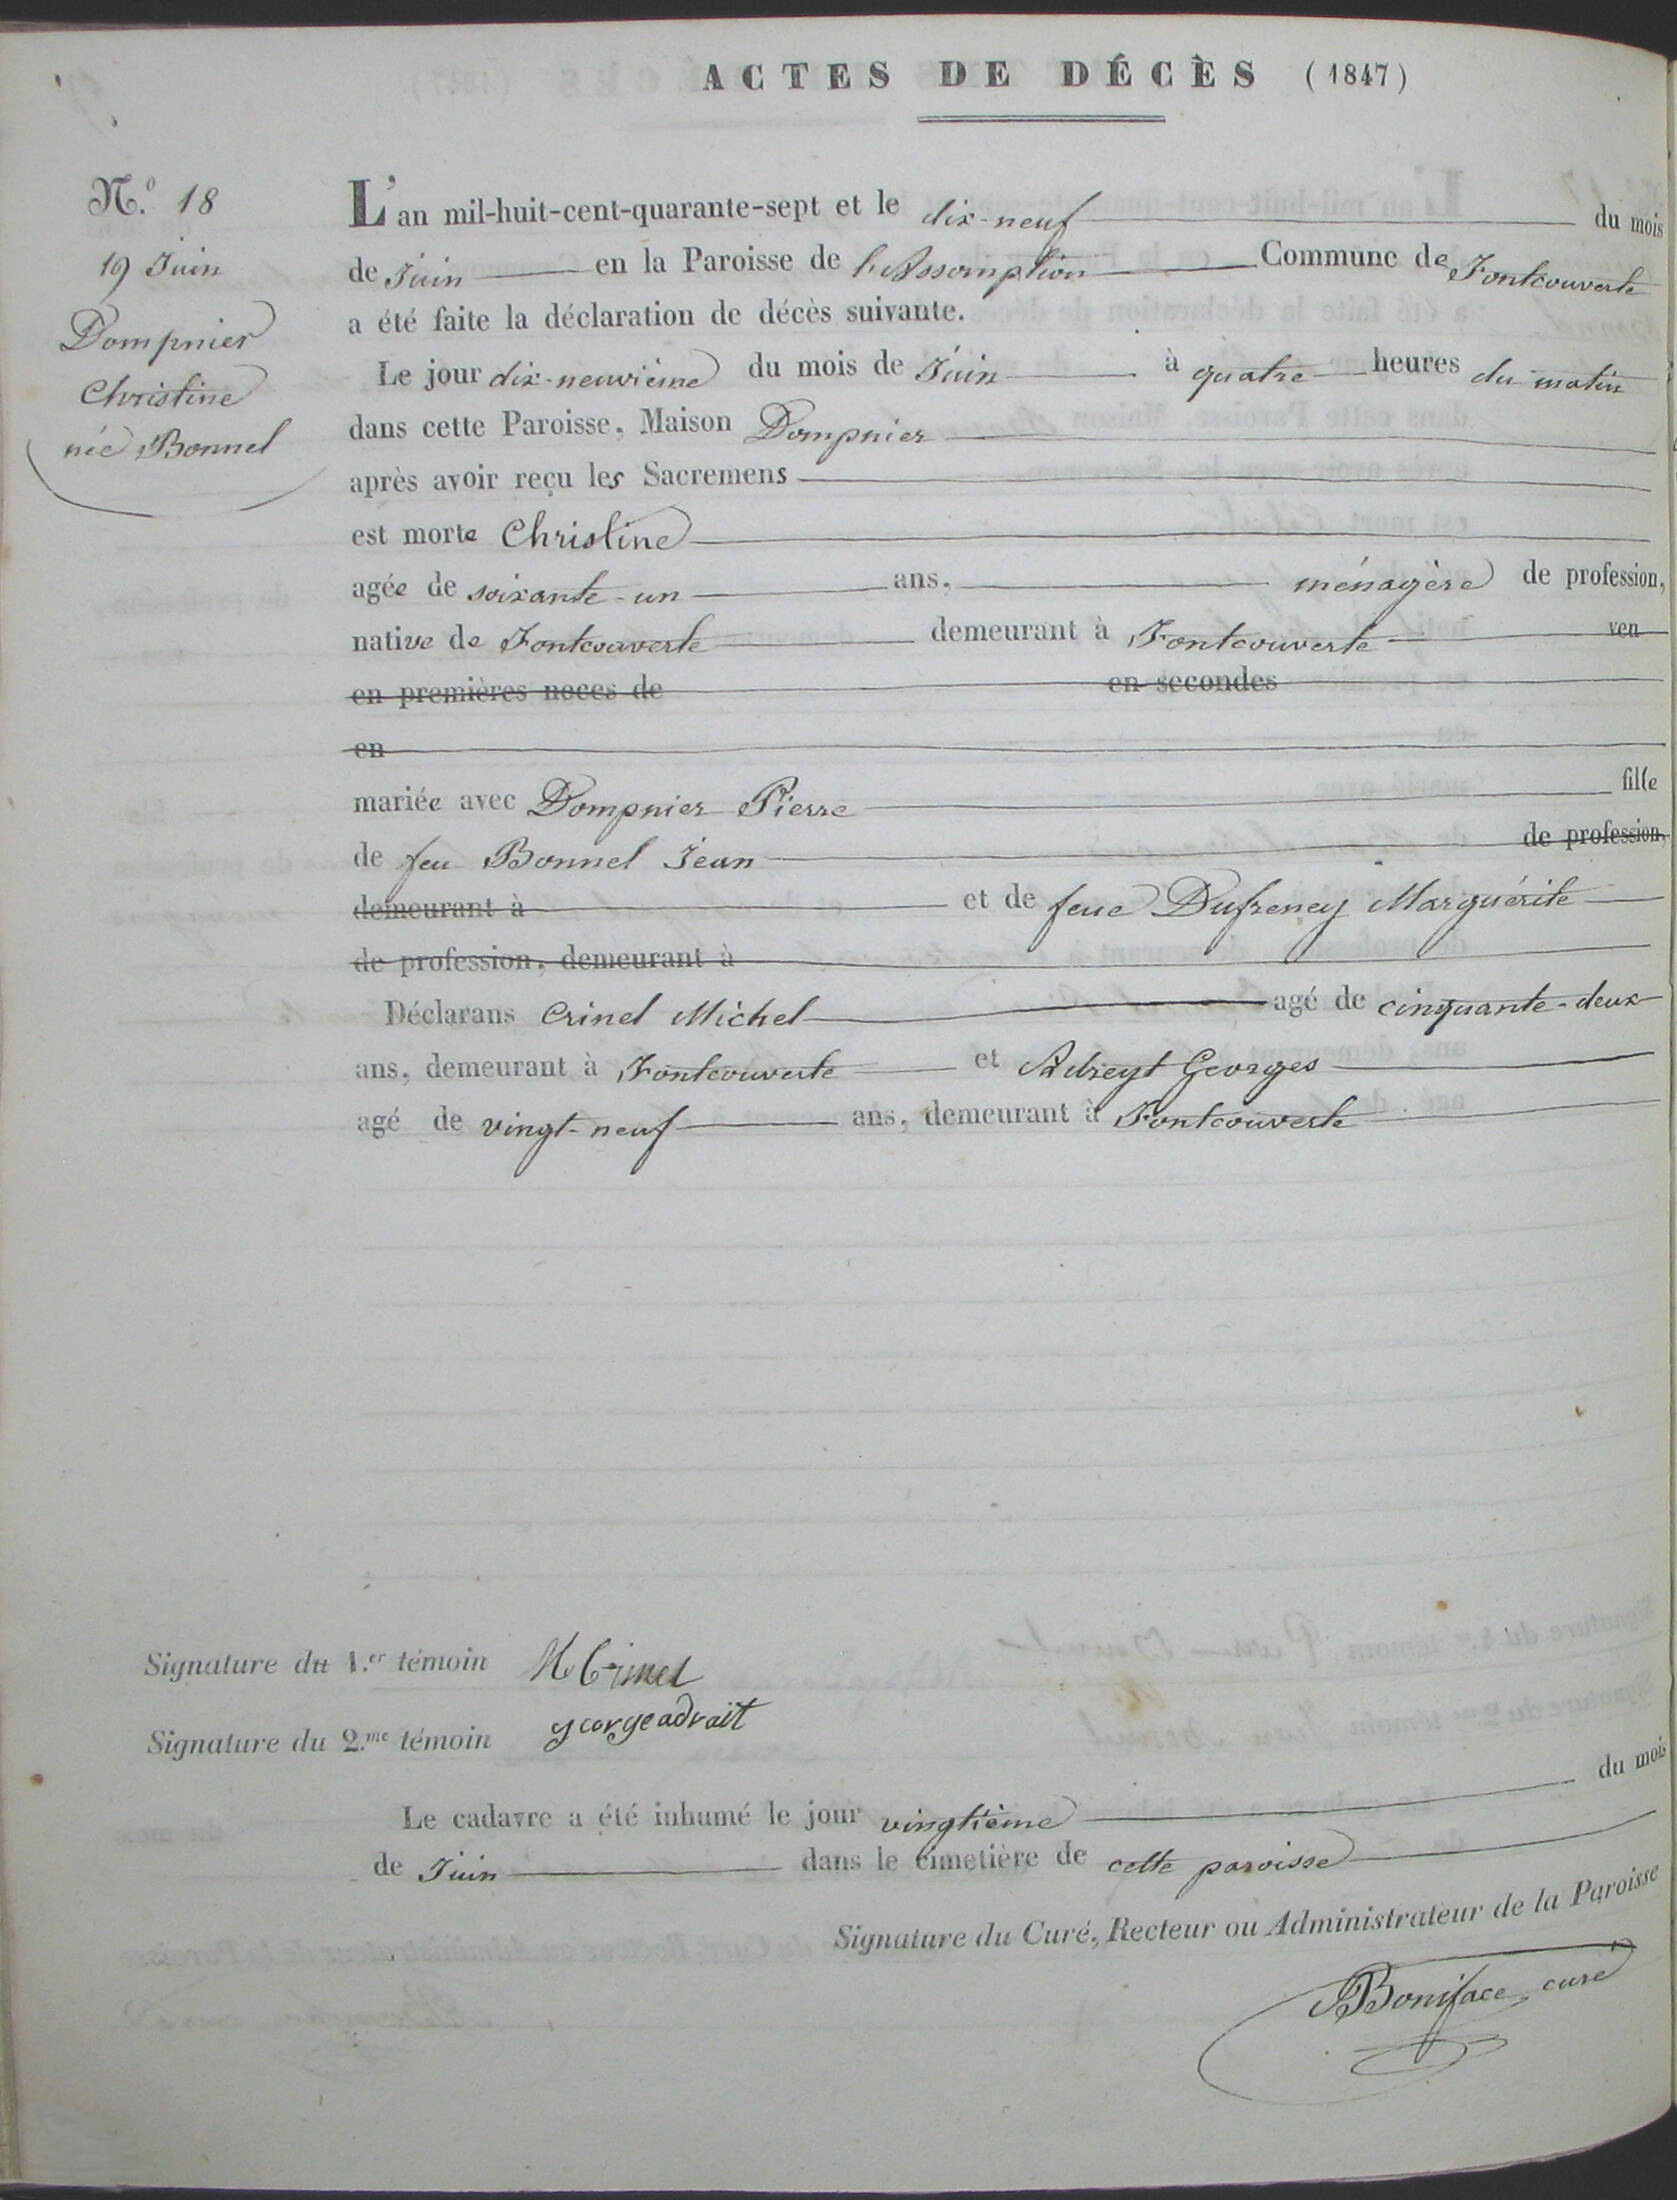 ACTES DE DÉCÈS (1847)
N.º 18
19 Juin
Dompnier
Christine
née Bonnel
L'an mil-huit-cent-quarante-sept et le dix-neuf du mois
de Juin en la Paroisse de l'Assomption Commune de Fontcouverte
a été faite la déclaration de décès suivante.
Le jour dix-neuvième du mois de Juin à quatre heures du matin
dans cette Paroisse, Maison Dompnier
après avoir reçu les Sacremens
est morte Christine
agée de soixante-un ans, ménagère de profession,
native de Fontcouverte demeurant à Fontcouverte veu
en premières noces de en secondes
en
mariée avec Dompnier Pierre fille
de feu Bonnel Jean de profession,
demeurant à et de feue Dufreney Marguérite
de profession, demeurant à
Déclarans Crinel Michel agé de cinquante-deux
ans, demeurant à Fontcouverte et Adreyt Georges
agé de vingt-neuf ans, demeurant à Fontcouverte
Signature du 1.er témoin M Crinel
Signature du 2.me témoin george adrait
Le cadavre a été inhumé le jour vingtième du mois
de Juin dans le cimetière de cette paroisse
Signature du Curé, Recteur ou Administrateur de la Paroisse
Boniface, curé